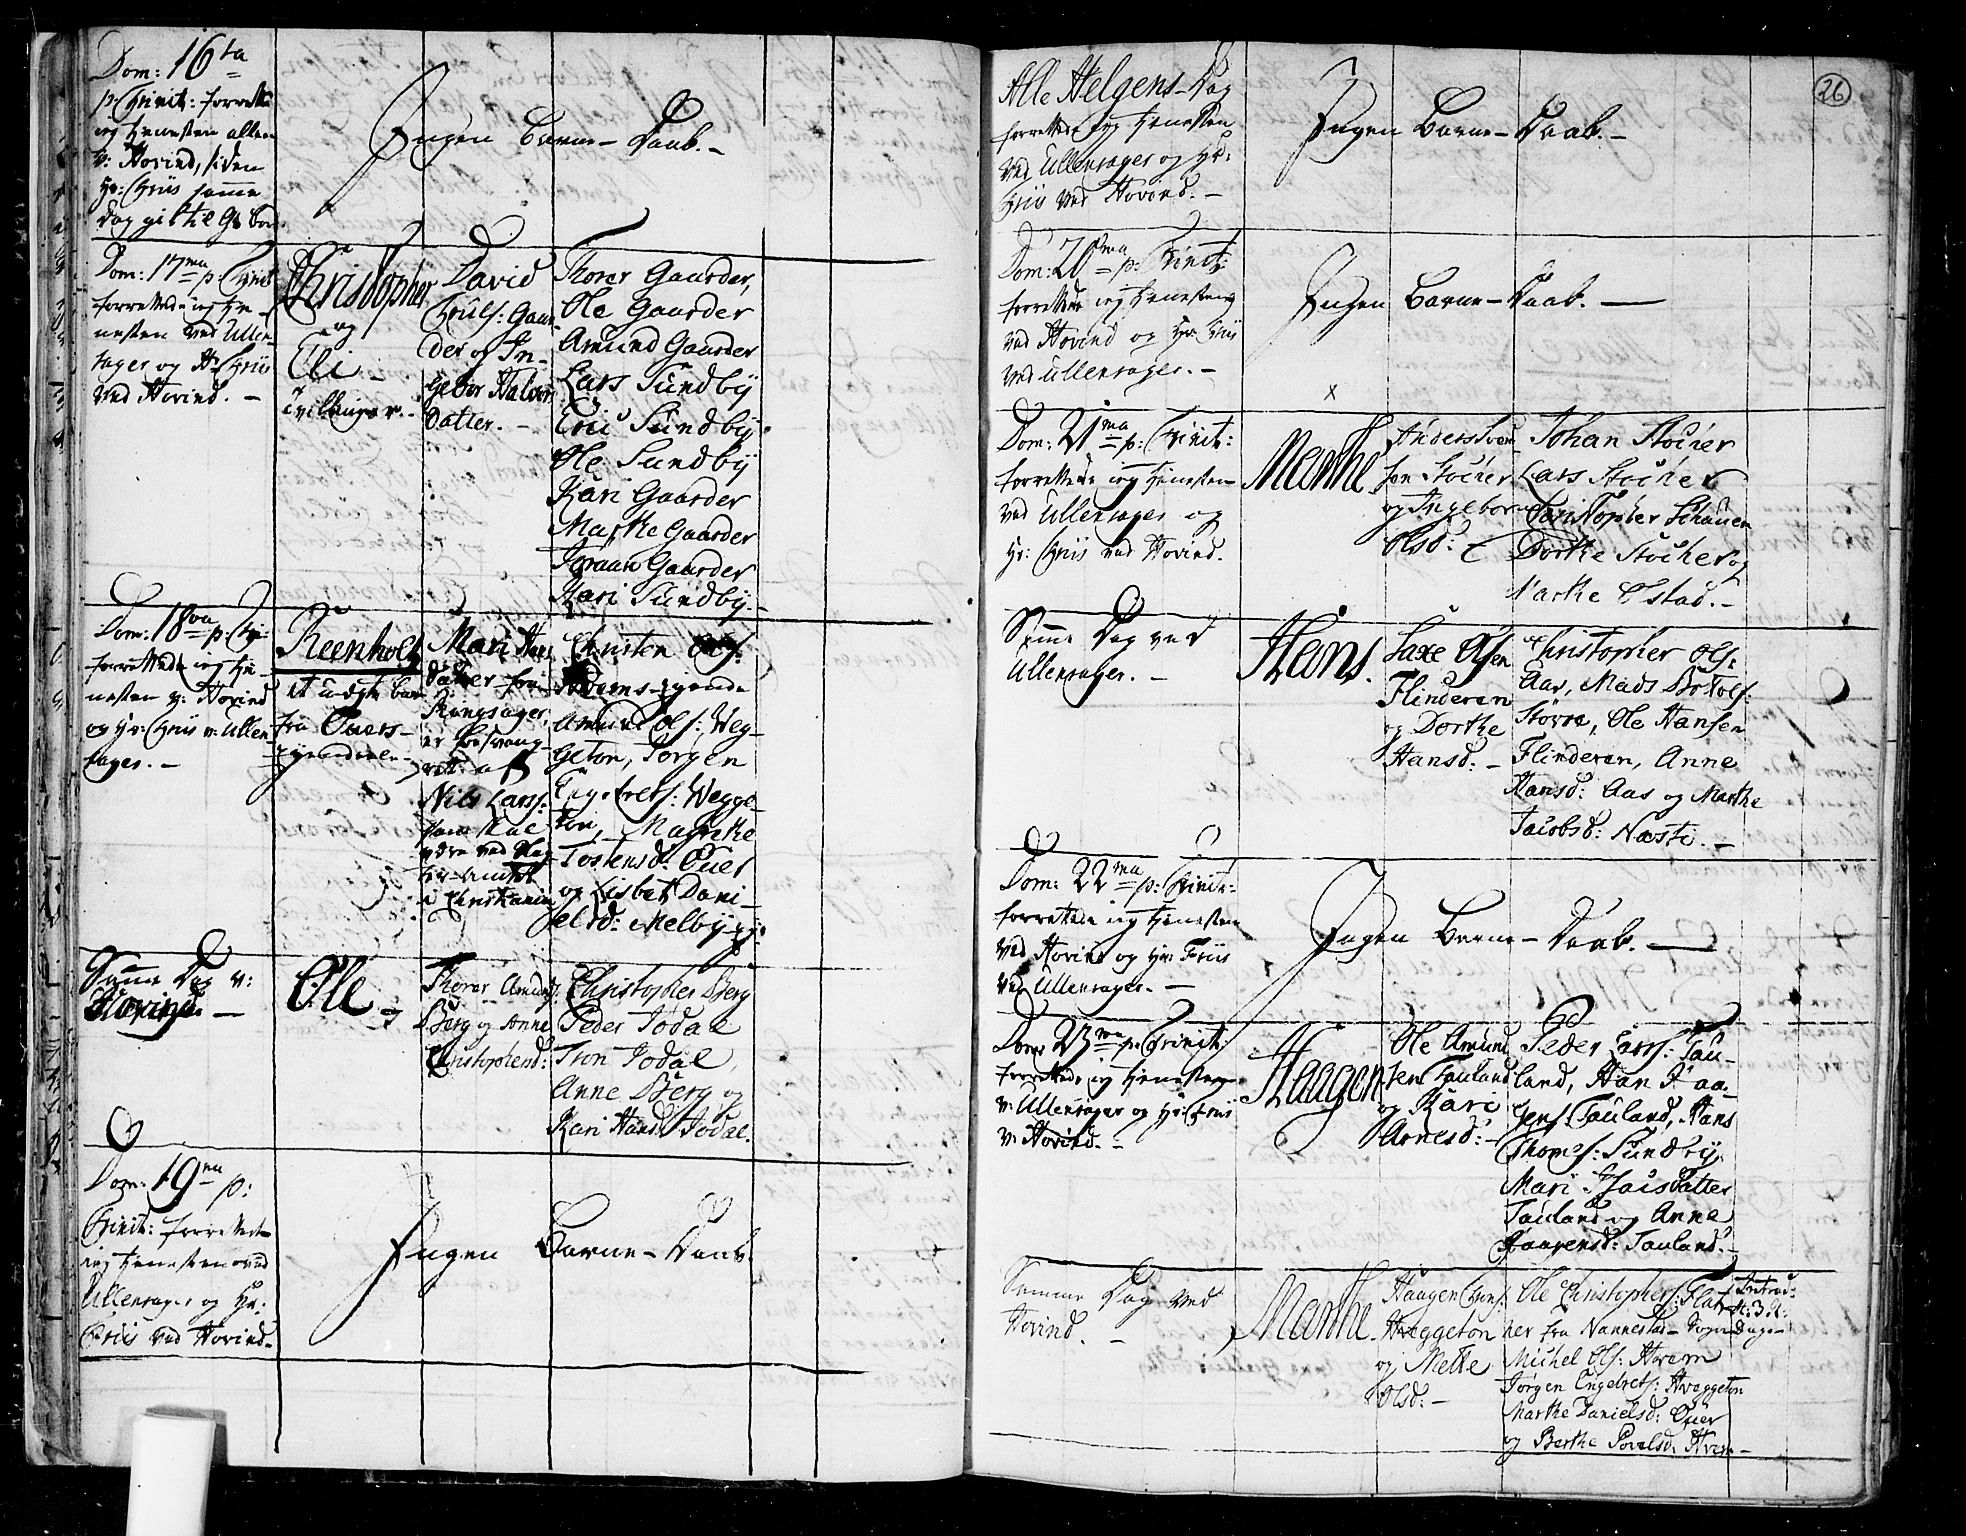 Dom: 16ta
p: Trinit: forrettede
ieg tienesten alleene
v: Hovind, siden
Hr: Friis samme
Dag
Ingen Barne-Daab. -
Dom: 17ma p: Trinit
forrettede ieg tie-
nesten ved Ullen-
sager og Hr Friis
ved Hovind. -
Christopher
og
Eli -
Tvillinger. -
David
Truls: Gaar-
der og In-
gebor Halvors
Datter. -
Thorer Gaarder,
Ole Gaarder
Amund Gaarder
Lars Sundby
Eric Sundby
Ole Sundby
Kari Gaarder
Marthe Gaarder
Joraan Gaarder
Kari Sundby. -
Dom: 18va p: Tri:
forrettede ieg tie-
nesten v: Hovind
og Hr: Friis v: Ullen-
sager. -
Reenholt
et uægte barn
fra Ouers-
Mari Hans
datter fra
Ringsager,
er besvang-
ret af
Nils Larss:
som skal
være ved
i Christiania
Christen Ols:
Amund Ols: Weg-
geton, Jørgen
Engebrets: Wegge-
ton, Magnhe
Tostensd: Ouer
og Lisbet Dani-
elsd: Melbye
Samme Dag v:
Hovind. -
Ole -
Thorer Amunds:
Berg og Anne
Christophersd:
Christopher Berg
Peder Jødal
Tron Jødal,
Anne Berg og
Kari Hansd: Jødal.
Dom: 19na p:
Trinit: forrettet
ieg tienesten ved
Ullensager og Hr:
Friis ved Hovind -
Ingen Barne-Daab.
26
Alle Helgens-Dag
forrettede ieg tienesten
ved Ullensager og Hr:
Friis ved Hovind. -
Ingen Barne-Daab. -
Dom: 20ma p: Trinit:
forrettede ieg tienesten
ved Hovind og Hr Friis
ved Ullensager. -
Ingen Barne-Daab. -
x
Dom: 21ma p: Trinit:
forrettede ieg tienesten
ved Ullensager og
Hr: Friis ved Hovind.
Marthe
Anders Iver
sen Stocher
og Ingeborg
Olsd:
Johan Stocher
Lars Stocher
Christopher Schauen
Dorthe Stocher og
Marthe Østad. -
Samme Dag ved
Ullensager. -
Hans.
Saxe Olsen
Flinderen
og Dorthe
Hansd: -
Christopher Ols:
Aas, Mads Botols:
Større, Ole Hansen
Flinderen, Anne
Hansd: Aas og Marthe
Jacobsd: Næste. -
Dom: 22ma p: Trinit:
forrettede ieg tienesten
ved Hovind og Hr: Friis
ved Ullensager. -
Ingen Barne-Daab. -
Dom: 23ma p: Trinit:
forrettede ieg tienesten
v: Ullensager og Hr: Friis
v: Hovind. -
Haagen
Ole Amund
sen Tauland
og Kari
Arnesd: -
Peder Larss: Tau-
land, Han Haa-
gens: Tauland, Hans
Thoms: Sundby,
Mari Isaisdatter
Tauland og Anne
Haagensd: Tauland. -
Samme Dag ved
Hovind. -
Marthe.
Haagen
Hveggeton
og Mette
Olsd: -
Ole Christophers: Flat-
ner fra Nannestad-Sogn
Michel Ols: Hvem
Jørgen Engebrets: Hveggeton
Marthe Danielsd: Ouer
og Berthe Povelsd: Hvem -
Introd: